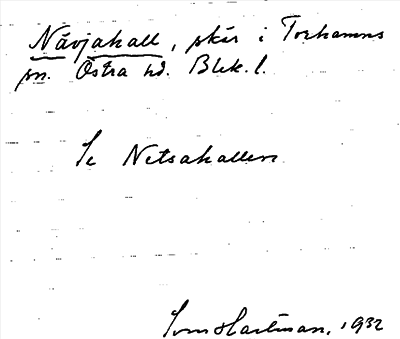 Nävjakall, skär i Torhamns
sn. Östra hd. Blek. l.
Se Netsakallen
Hartman, 1932